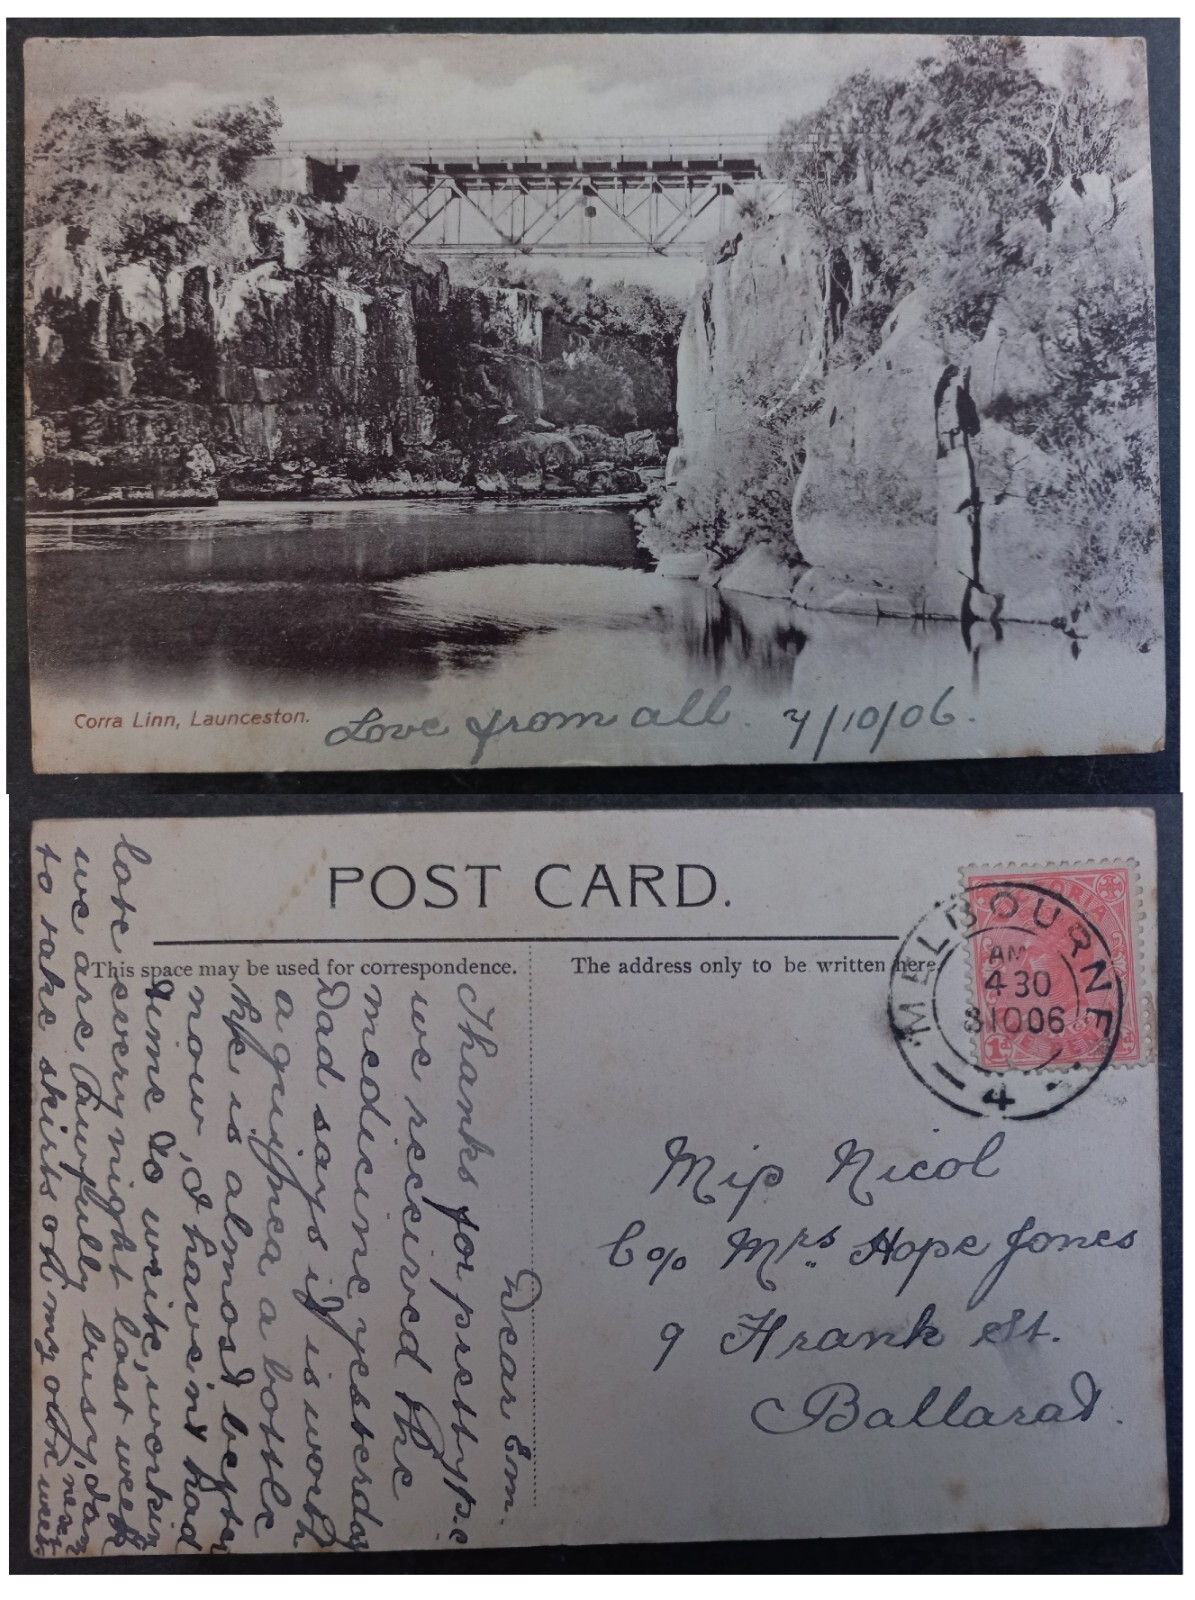 Corra Linn, Launceston.
Love from all. 7/10/06.
POST CARD.
This space may be used for correspondence.
The address only to be written here.
VICTORIA
ONE PENNY
1d
MELBOURNE
AM
4 30
8 10 06
4
Miss Nicol
C/o Mrs. Hope Jones
9 Frank St.
Ballarat.
Dear Em.
Thanks for pretty p.c
we received the
medicine yesterday
Dad says it is worth
a guinea a bottle
He is almost better
now, I haven't had
time to write, workin
late every night last week
we are awfully busy, I am
to take skirts on my own next week